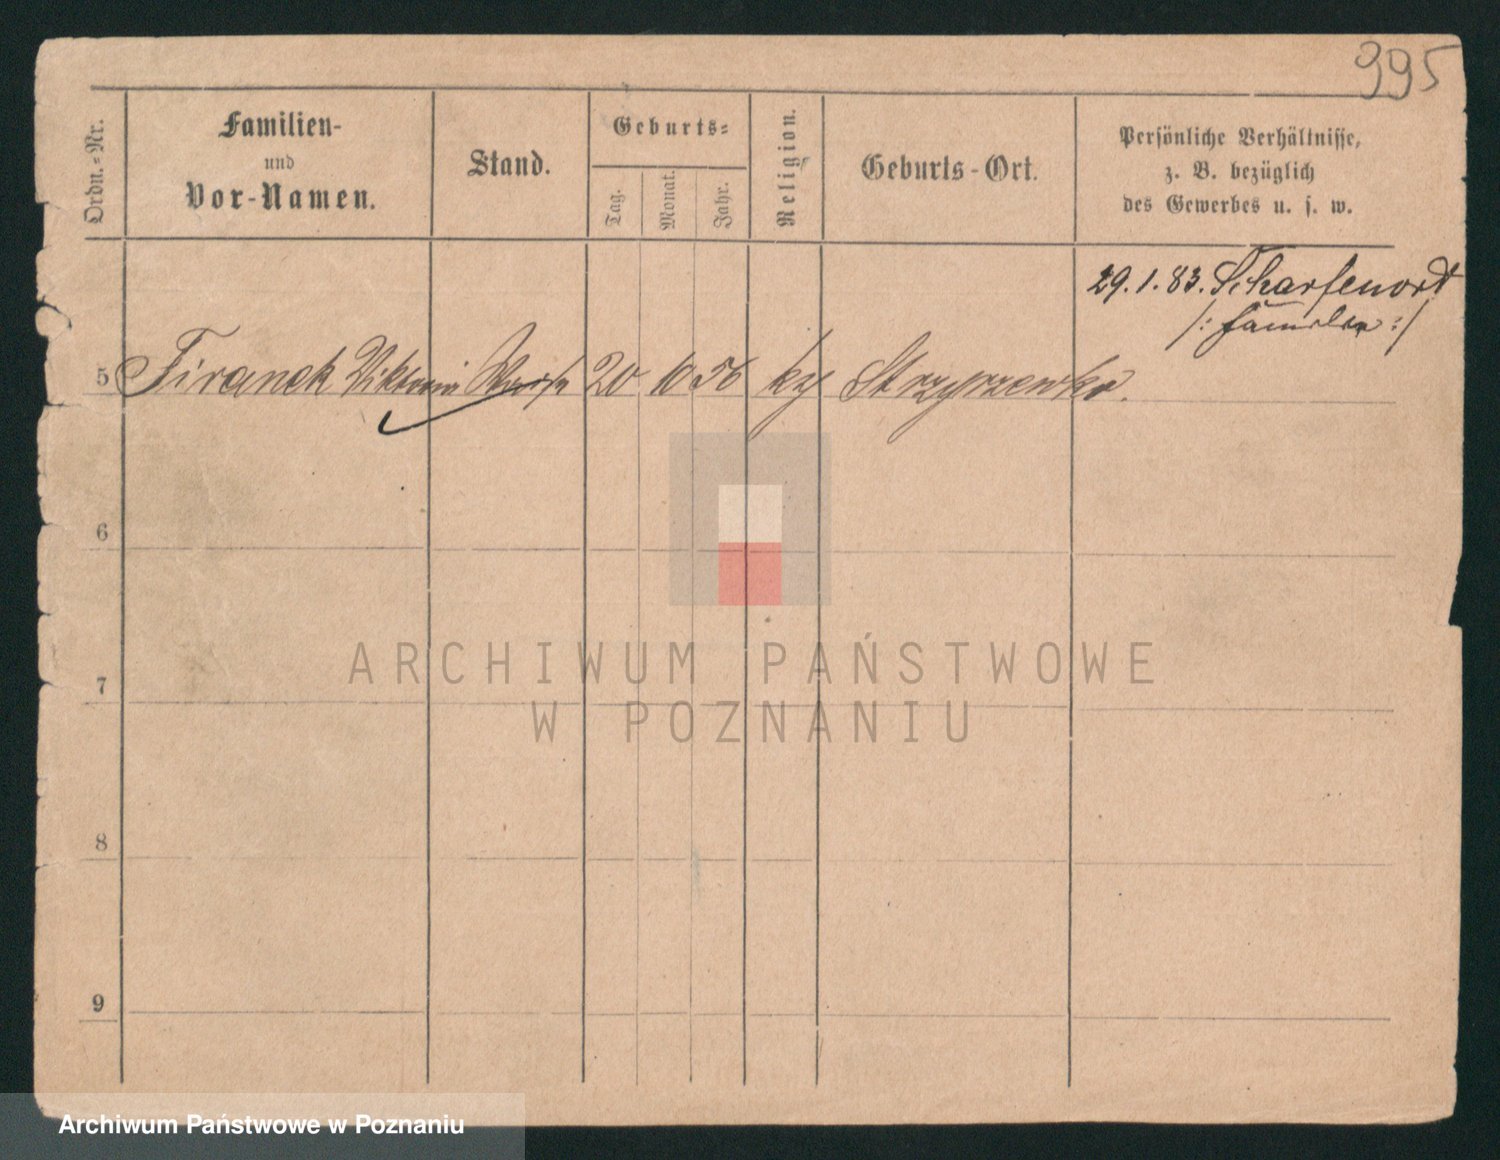 995
Ordn.-Nr.
Familien-
und
Vor-Namen.
Stand.
Geburts-
Tag.
Monat.
Jahr.
Religion.
Geburts-Ort.
Persönliche Verhältnisse,
z. B. bezüglich
des Gewerbes u. s. w.
29.1.83. Scharfenort
/: Familie :/
5 Firanek Viktoria 20 10 56 kz
6
7
8
9
ARCHIWUM PAŃSTWOWE
W POZNANIU
Archiwum Państwowe w Poznaniu